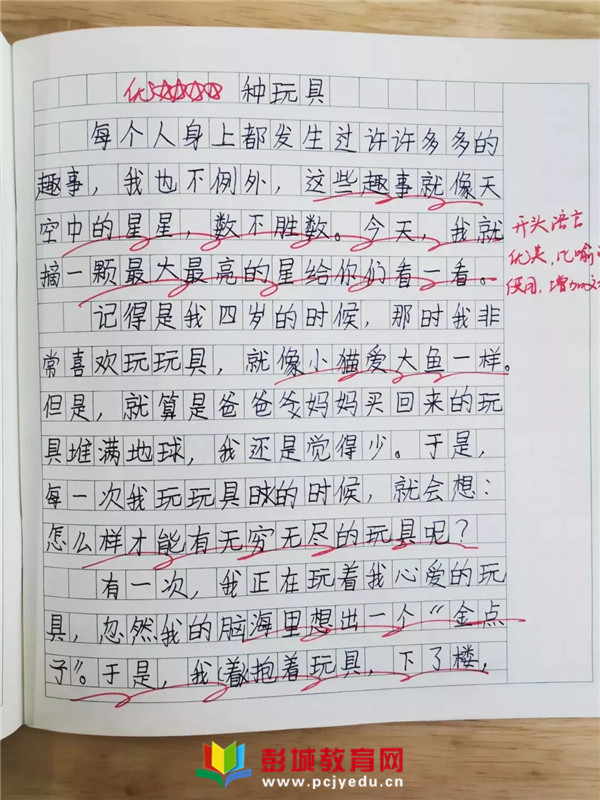 优☆☆☆☆☆ 种玩具
每个人身上都发生过许许多多的
趣事，我也不例外，这些趣事就像天
空中的星星，数不胜数。今天，我就
摘一颗最大最亮的星给你们看一看。
开头语言
优美，比喻
使用，增加文
记得是我四岁的时候，那时我非
常喜欢玩玩具，就像小猫爱大鱼一样。
但是，就算是爸爸爸妈妈买回来的玩
具堆满地球，我还是觉得少。于是，
每一次我玩玩具的时候，就会想：
怎么样才能有无穷无尽的玩具呢？
有一次，我正在玩着我心爱的玩
具，忽然我的脑海里想出一个“金点
子”。于是，我抱着玩具，下了楼，
彭城教育网
www.pcjyedu.cn